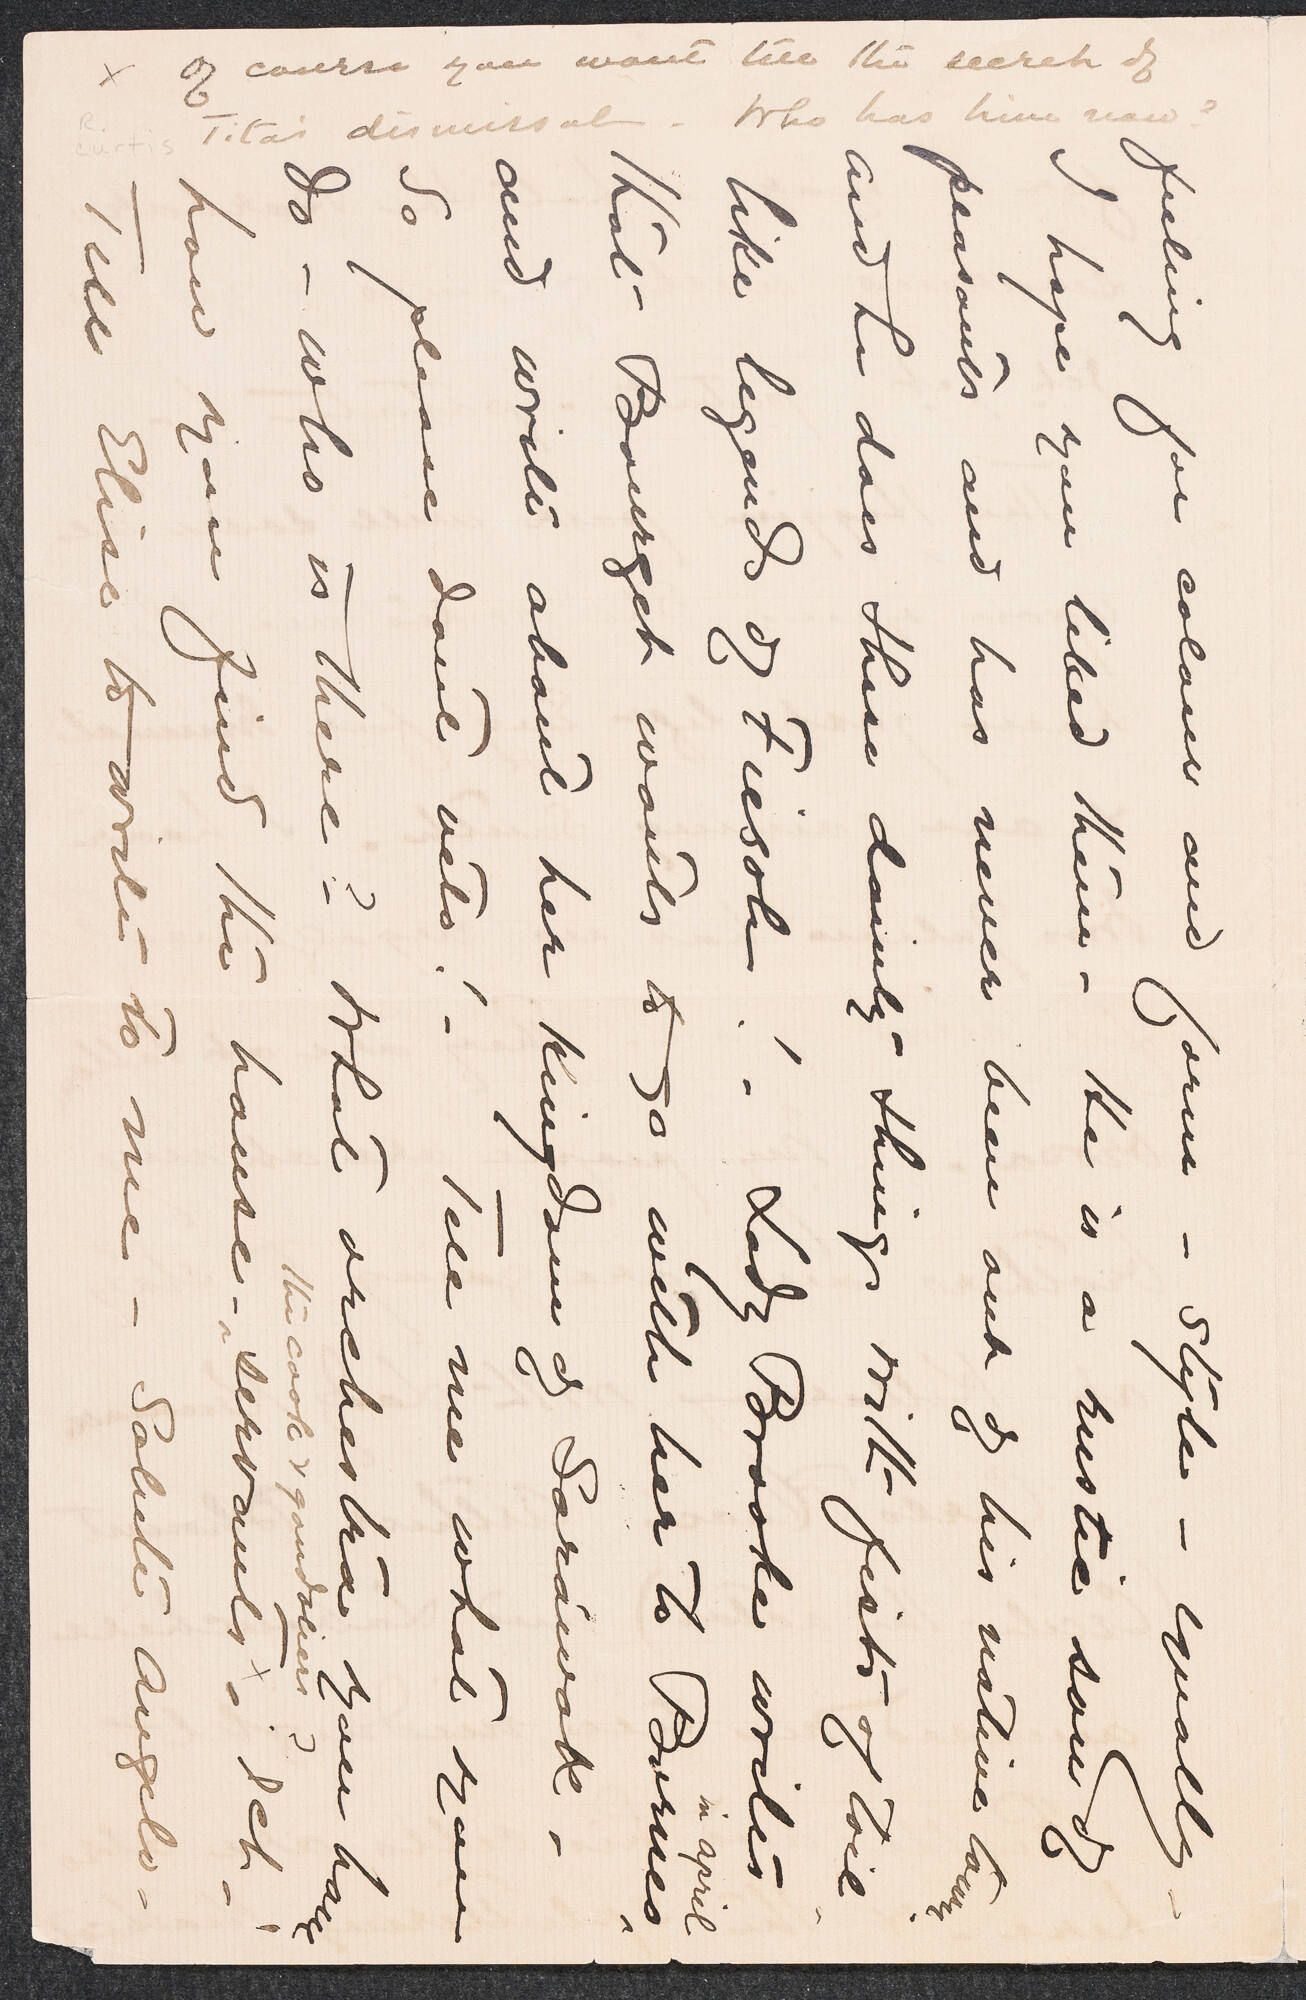 feeling for colour and form - style - equally -
I hope you liked them - He is a rustic son of
peasants and has never been out of his native town.
and he does these dainty things with fists of toil
like legends of Fiesole! - Lady Brooke writes
that Bourget wants to go with her to Borneo,
in april
and write about her kingdom of Sarawak -
So please don't veto! - Tell me what you
do - who is there? What orchestra you have
how you find the house - servants x - Set -
the cook & gondoliers?
Tell Elise to write to me - Salute Angelo -
x Of course you wont tell the secret of
Tita's dismissal - Who has him now?
R.
Curtis